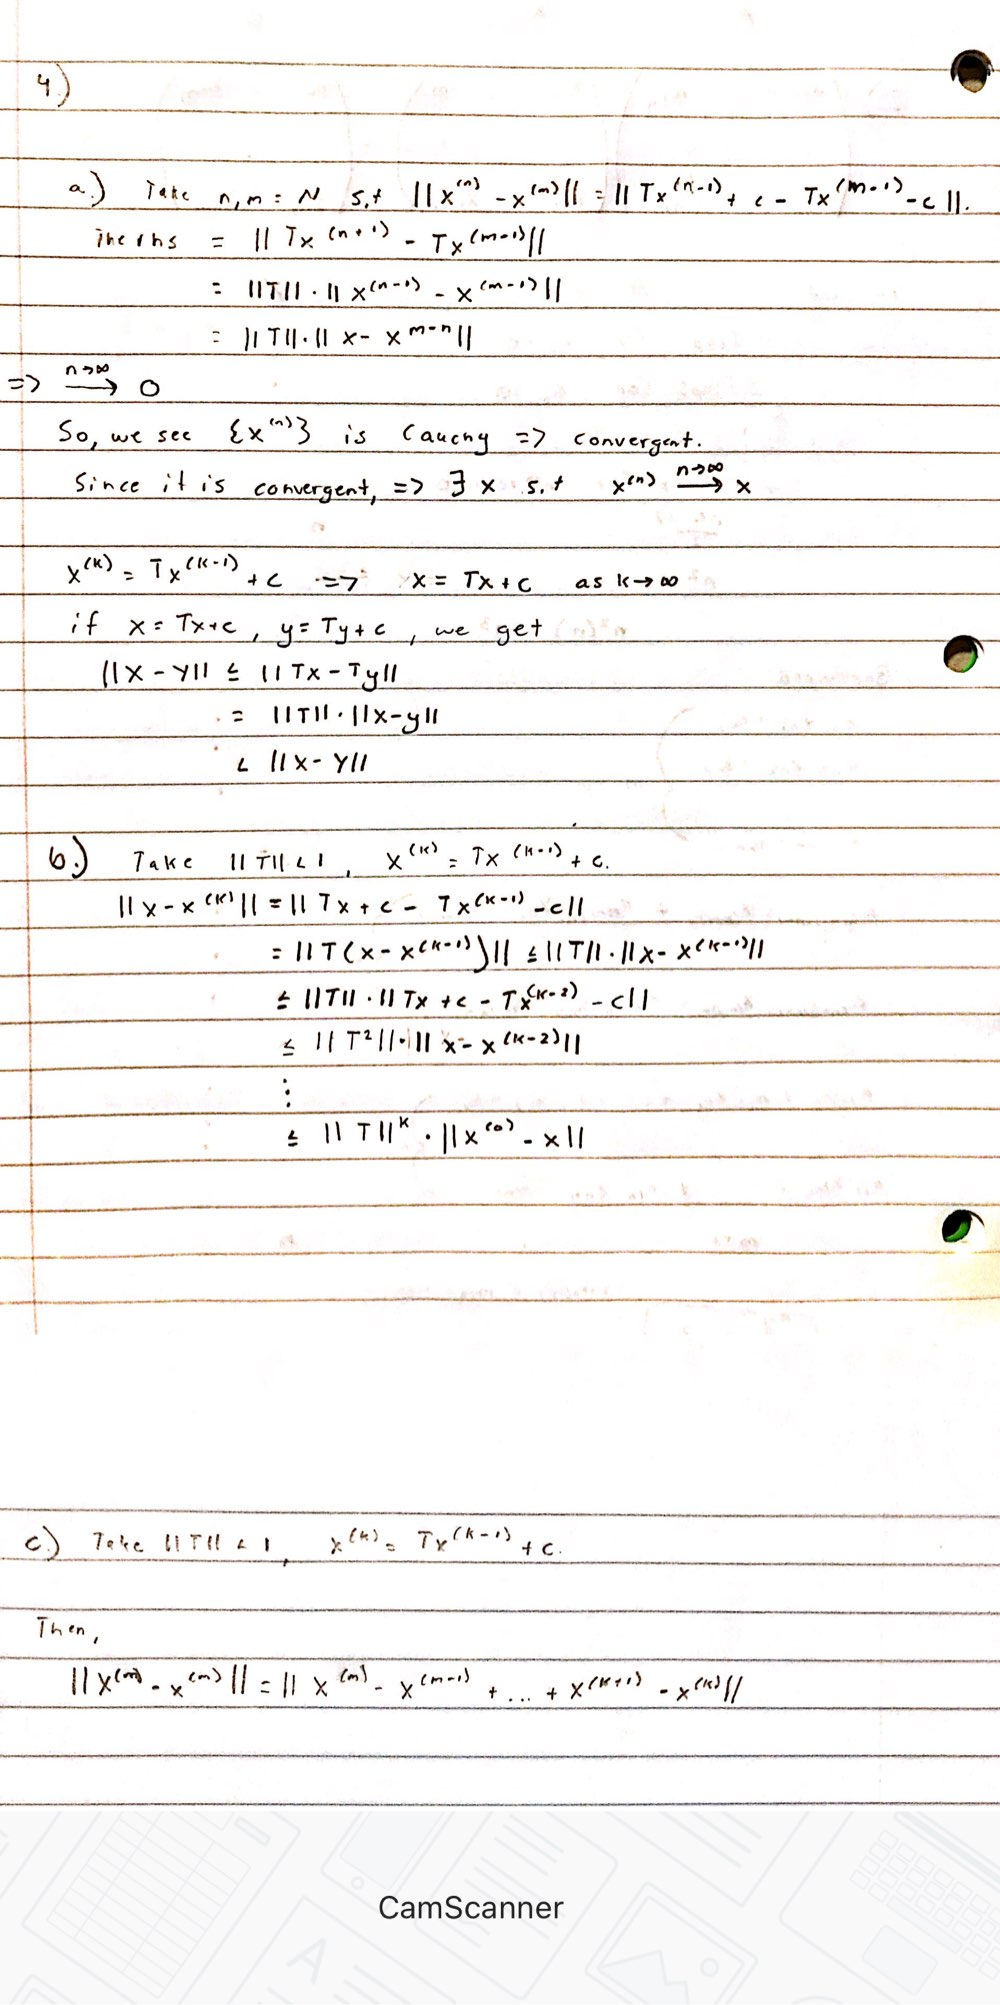 4.)
a.) Take n,m = N s.t ||x^(n) - x^(m)|| = ||Tx^(n-1) + c - Tx^(m-1) - c||.
The rhs = ||Tx^(n+1) - Tx^(m-1)||
= ||T||·||x^(n-1) - x^(m-1)||
= ||T||·||x - x^m-n||
=> n→∞ ⟶ 0
So, we see {x^(n)} is Cauchy => convergent.
Since it is convergent, => ∃ x s.t x^(n) n→∞ ⟶ x
x^(k) = Tx^(k-1) + c => x = Tx + c as k→∞
if x = Tx+c, y = Ty+c, we get
||x - y|| ≤ ||Tx - Ty||
= ||T||·||x-y||
< ||x - y||
b.) Take ||T|| < 1, x^(k) = Tx^(k-1) + c.
||x - x^(k)|| = ||Tx + c - Tx^(k-1) - c||
= ||T(x - x^(k-1))|| ≤ ||T||·||x - x^(k-1)||
≤ ||T||·||Tx + c - Tx^(k-2) - c||
≤ ||T²||·||x - x^(k-2)||
⋮
≤ ||T||^k · ||x^(0) - x||
c.) Take ||T|| < 1, x^(k) = Tx^(k-1) + c.
Then,
||x^(m) - x^(m)|| = ||x^(m) - x^(m-1) + ... + x^(k+1) - x^(k)||
CamScanner